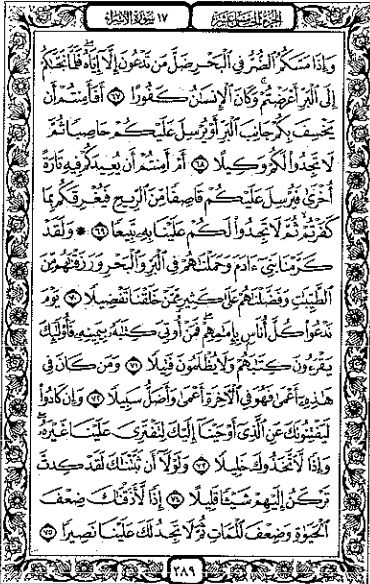 الجزء الخامس عشر
١٧ سورة الإسراء
وَإِذَا مَسَّكُمُ ٱلضُّرُّ فِي ٱلۡبَحۡرِ ضَلَّ مَن تَدۡعُونَ إِلَّآ إِيَّاهُۖ فَلَمَّا نَجَّىٰكُمۡ
إِلَى ٱلۡبَرِّ أَعۡرَضۡتُمۡۚ وَكَانَ ٱلۡإِنسَٰنُ كَفُورًا ٦٧ أَفَأَمِنتُمۡ أَن
يَخۡسِفَ بِكُمۡ جَانِبَ ٱلۡبَرِّ أَوۡ يُرۡسِلَ عَلَيۡكُمۡ حَاصِبٗا ثُمَّ
لَا تَجِدُواْ لَكُمۡ وَكِيلًا ٦٨ أَمۡ أَمِنتُمۡ أَن يُعِيدَكُمۡ فِيهِ تَارَةً
أُخۡرَىٰ فَيُرۡسِلَ عَلَيۡكُمۡ قَاصِفٗا مِّنَ ٱلرِّيحِ فَيُغۡرِقَكُم بِمَا
كَفَرۡتُمۡ ثُمَّ لَا تَجِدُواْ لَكُمۡ عَلَيۡنَا بِهِۦ تَبِيعٗا ٦٩ * وَلَقَدۡ
كَرَّمۡنَا بَنِيٓ ءَادَمَ وَحَمَلۡنَٰهُمۡ فِي ٱلۡبَرِّ وَٱلۡبَحۡرِ وَرَزَقۡنَٰهُم مِّنَ
ٱلطَّيِّبَٰتِ وَفَضَّلۡنَٰهُمۡ عَلَىٰ كَثِيرٖ مِّمَّنۡ خَلَقۡنَا تَفۡضِيلٗا ٧٠ يَوۡمَ
نَدۡعُواْ كُلَّ أُنَاسِۭ بِإِمَٰمِهِمۡۖ فَمَنۡ أُوتِيَ كِتَٰبَهُۥ بِيَمِينِهِۦ فَأُوْلَٰٓئِكَ
يَقۡرَءُونَ كِتَٰبَهُمۡ وَلَا يُظۡلَمُونَ فَتِيلٗا ٧١ وَمَن كَانَ فِي
هَٰذِهِۦٓ أَعۡمَىٰ فَهُوَ فِي ٱلۡأٓخِرَةِ أَعۡمَىٰ وَأَضَلُّ سَبِيلٗا ٧٢ وَإِن كَادُواْ
لَيَفۡتِنُونَكَ عَنِ ٱلَّذِيٓ أَوۡحَيۡنَآ إِلَيۡكَ لِتَفۡتَرِيَ عَلَيۡنَا غَيۡرَهُۥۖ
وَإِذٗا لَّٱتَّخَذُوكَ خَلِيلٗا ٧٣ وَلَوۡلَآ أَن ثَبَّتۡنَٰكَ لَقَدۡ كِدتَّ
تَرۡكَنُ إِلَيۡهِمۡ شَيۡـٔٗا قَلِيلًا ٧٤ إِذٗا لَّأَذَقۡنَٰكَ ضِعۡفَ
ٱلۡحَيَوٰةِ وَضِعۡفَ ٱلۡمَمَاتِ ثُمَّ لَا تَجِدُ لَكَ عَلَيۡنَا نَصِيرٗا ٧٥
٣٨٩